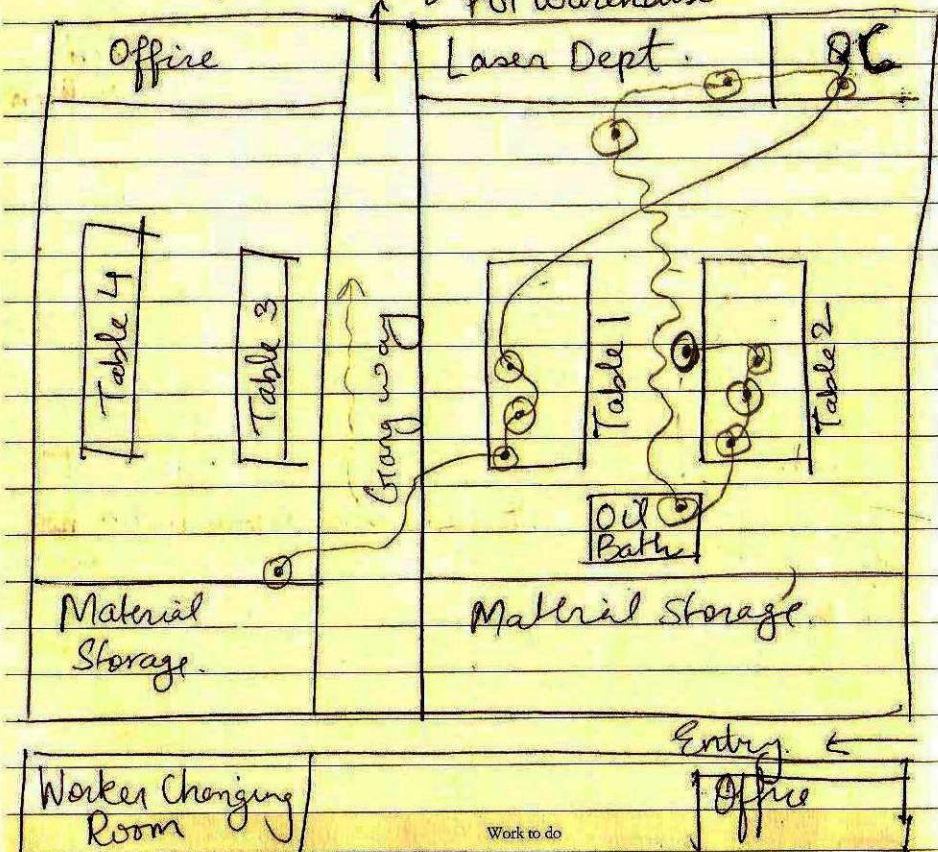 Warehouse
Office
Laser Dept.
QC
Table 4
Table 3
Gang way
Table 1
Table 2
Oil
Bath
Material
Storage.
Material Storage.
Entry.
Worker Changing
Room
Office
Work to do